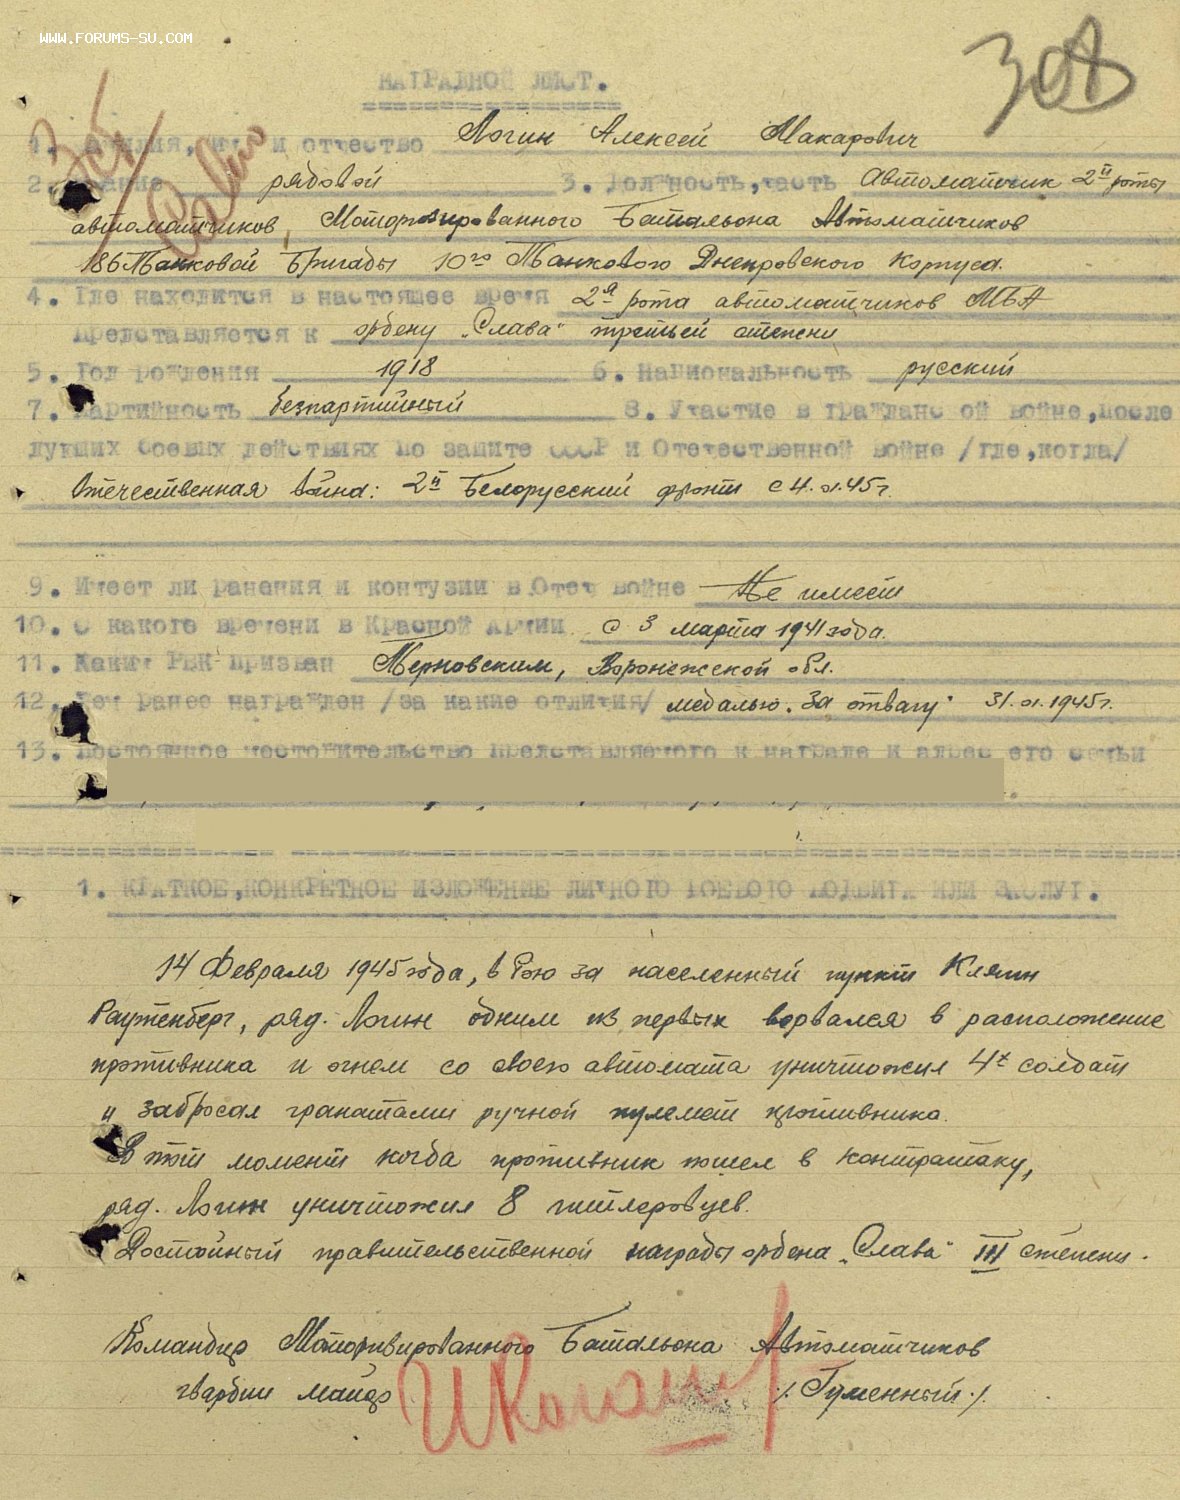 WWW.FORUMS-SU.COM
308
НАГРАДНОЙ ЛИСТ.
1. Фамилия, имя и отчество Логин Алексей Макарович
2. Звание рядовой 3. Должность, часть Автоматчик 2й роты
автоматчиков, Моторизированного Батальона Автоматчиков
186 Танковой Бригады 10го Танкового Днепровского Корпуса.
4. Где находится в настоящее время 2я рота автоматчиков МБА
Представляется к ордену „Слава" третьей степени
5. Год рождения 1918 6. Национальность русский
7. Партийность безпартийный 8. Участие в гражданской войне, после
дующих боевых действиях по защите СССР и Отечественной войне /где, когда/
Отечественная война: 2й Белорусский фронт с 4.01.45г.
9. Имеет ли ранения и контузии в Отеч войне Не имеет
10. С какого времени в Красной Армии с 3 марта 1941 года.
11. Каким РВК призван Терновским, Воронежской обл.
12. Чем ранее награжден /за какие отличия/ медалью „За отвагу" 31.01.1945г.
13. Постоянное местожительство представляемого к награде и адрес его семьи
1. КРАТКОЕ, КОНКРЕТНОЕ ИЗЛОЖЕНИЕ ЛИЧНОГО БОЕВОГО ПОДВИГА ИЛИ ЗАСЛУГ.
14 Февраля 1945 года, в бою за населенный пункт Кляин
Раутенберг, ряд. Логин одним из первых ворвался в расположение
противника и огнем со своего автомата уничтожил 4х солдат
и забросал гранатами ручной пулемет противника.
В тот момент когда противник пошел в контратаку,
ряд. Логин уничтожил 8 гитлеровцев.
Достойный правительственной награды ордена „Слава" III степени.
Командир Моторизированного Батальона Автоматчиков
гвардии майор /Гуменный/.